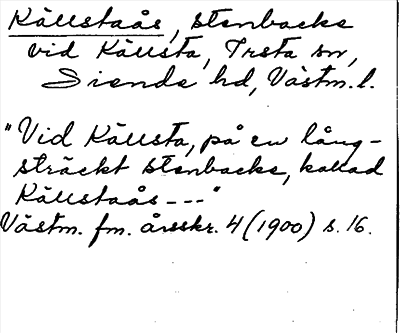 Källstaås, stenbacke
vid Källsta, Irsta sn,
Siende hd, Västm. l.
"Vid Källsta, på en lång-
sträckt stenbacke, kallad
Källstaås ---"
Västm. fm. årsskr. 4 (1900) s. 16.